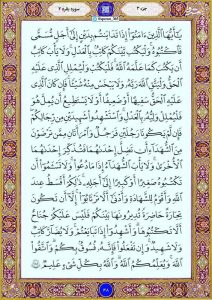 جزء ۳
سوره بقره ۲
يَا أَيُّهَا الَّذِينَ ءَامَنُوا إِذَا تَدَايَنتُم بِدَيْنٍ إِلَىٰ أَجَلٍ مُّسَمًّى
فَاكْتُبُوهُ وَلْيَكْتُب بَّيْنَكُمْ كَاتِبٌ بِالْعَدْلِ وَلَا يَأْبَ كَاتِبٌ
أَن يَكْتُبَ كَمَا عَلَّمَهُ اللَّهُ فَلْيَكْتُبْ وَلْيُمْلِلِ الَّذِي عَلَيْهِ
الْحَقُّ وَلْيَتَّقِ اللَّهَ رَبَّهُ وَلَا يَبْخَسْ مِنْهُ شَيْئًا فَإِن كَانَ الَّذِي
عَلَيْهِ الْحَقُّ سَفِيهًا أَوْ ضَعِيفًا أَوْ لَا يَسْتَطِيعُ أَن يُمِلَّ هُوَ
فَلْيُمْلِلْ وَلِيُّهُ بِالْعَدْلِ وَاسْتَشْهِدُوا شَهِيدَيْنِ مِن رِّجَالِكُمْ
فَإِن لَّمْ يَكُونَا رَجُلَيْنِ فَرَجُلٌ وَامْرَأَتَانِ مِمَّن تَرْضَوْنَ
مِنَ الشُّهَدَاءِ أَن تَضِلَّ إِحْدَاهُمَا فَتُذَكِّرَ إِحْدَاهُمَا
الْأُخْرَىٰ وَلَا يَأْبَ الشُّهَدَاءُ إِذَا مَا دُعُوا وَلَا تَسْأَمُوا أَن
تَكْتُبُوهُ صَغِيرًا أَوْ كَبِيرًا إِلَىٰ أَجَلِهِ ذَٰلِكُمْ أَقْسَطُ عِندَ
اللَّهِ وَأَقْوَمُ لِلشَّهَادَةِ وَأَدْنَىٰ أَلَّا تَرْتَابُوا إِلَّا أَن تَكُونَ
تِجَارَةً حَاضِرَةً تُدِيرُونَهَا بَيْنَكُمْ فَلَيْسَ عَلَيْكُمْ جُنَاحٌ
أَلَّا تَكْتُبُوهَا وَأَشْهِدُوا إِذَا تَبَايَعْتُمْ وَلَا يُضَارَّ كَاتِبٌ
وَلَا شَهِيدٌ وَإِن تَفْعَلُوا فَإِنَّهُ فُسُوقٌ بِكُمْ وَاتَّقُوا
اللَّهَ وَيُعَلِّمُكُمُ اللَّهُ وَاللَّهُ بِكُلِّ شَيْءٍ عَلِيمٌ
۴۸